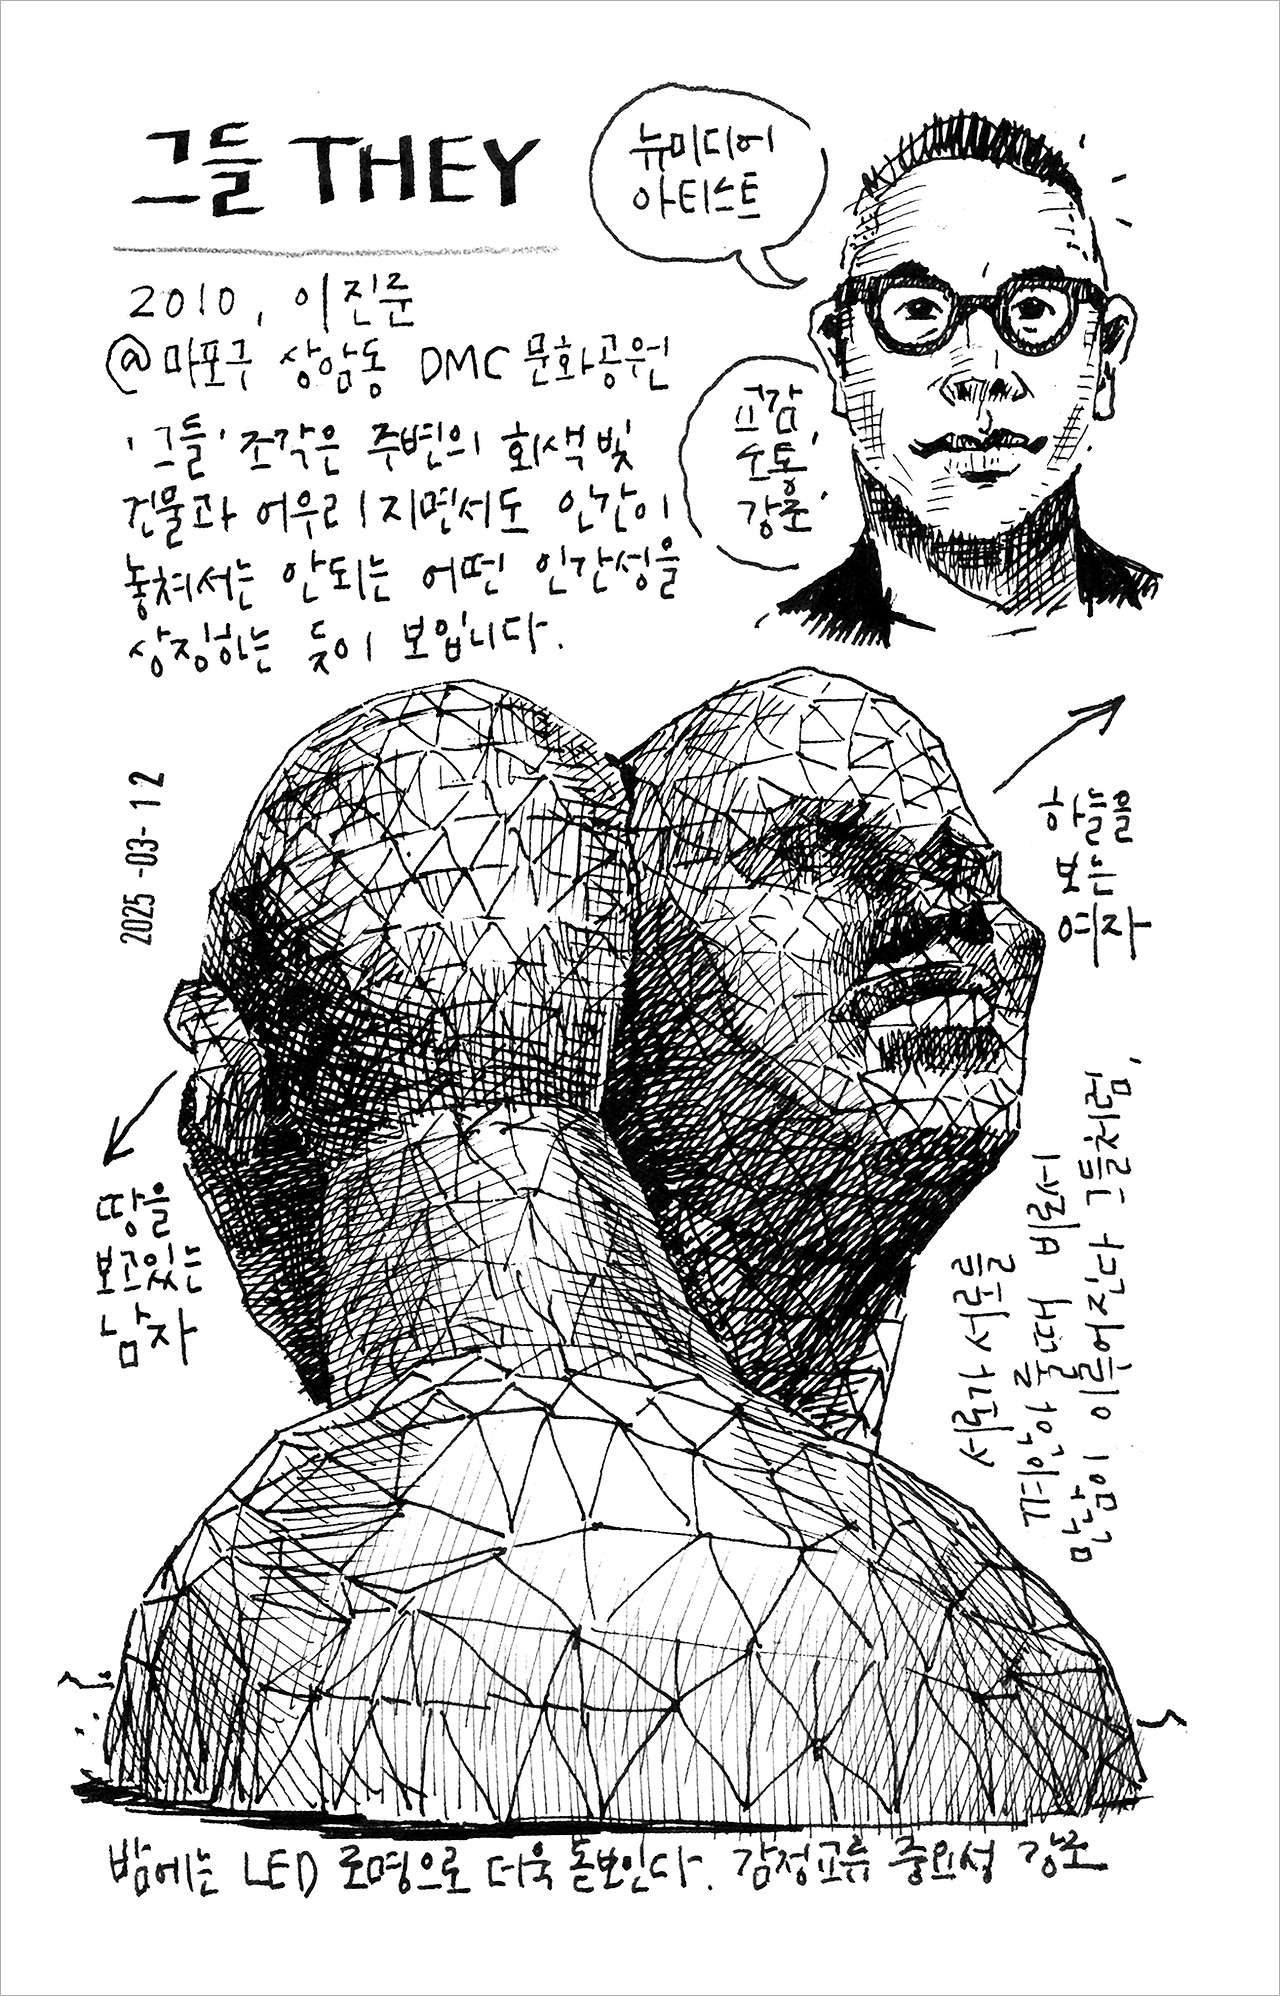 그들 THEY
2010, 이진준
@ 마포구 상암동 DMC 문화공원
'그들' 조각은 주변의 회색빛
건물과 어우러지면서도 인간이
놓쳐서는 안되는 어떤 인간성을
상징하는 듯이 보입니다.
뉴미디어
아티스트
교감,
소통,
강조
2025 -03- 12
하늘을
보는
여자
땅을
보고있는
남자
서로가 서로를
껴안아 줄때 비로서
만남이 이루어진다 그들처럼,
밤에는 LED 조명으로 더욱 돋보인다. 감정교류 중요성 강조